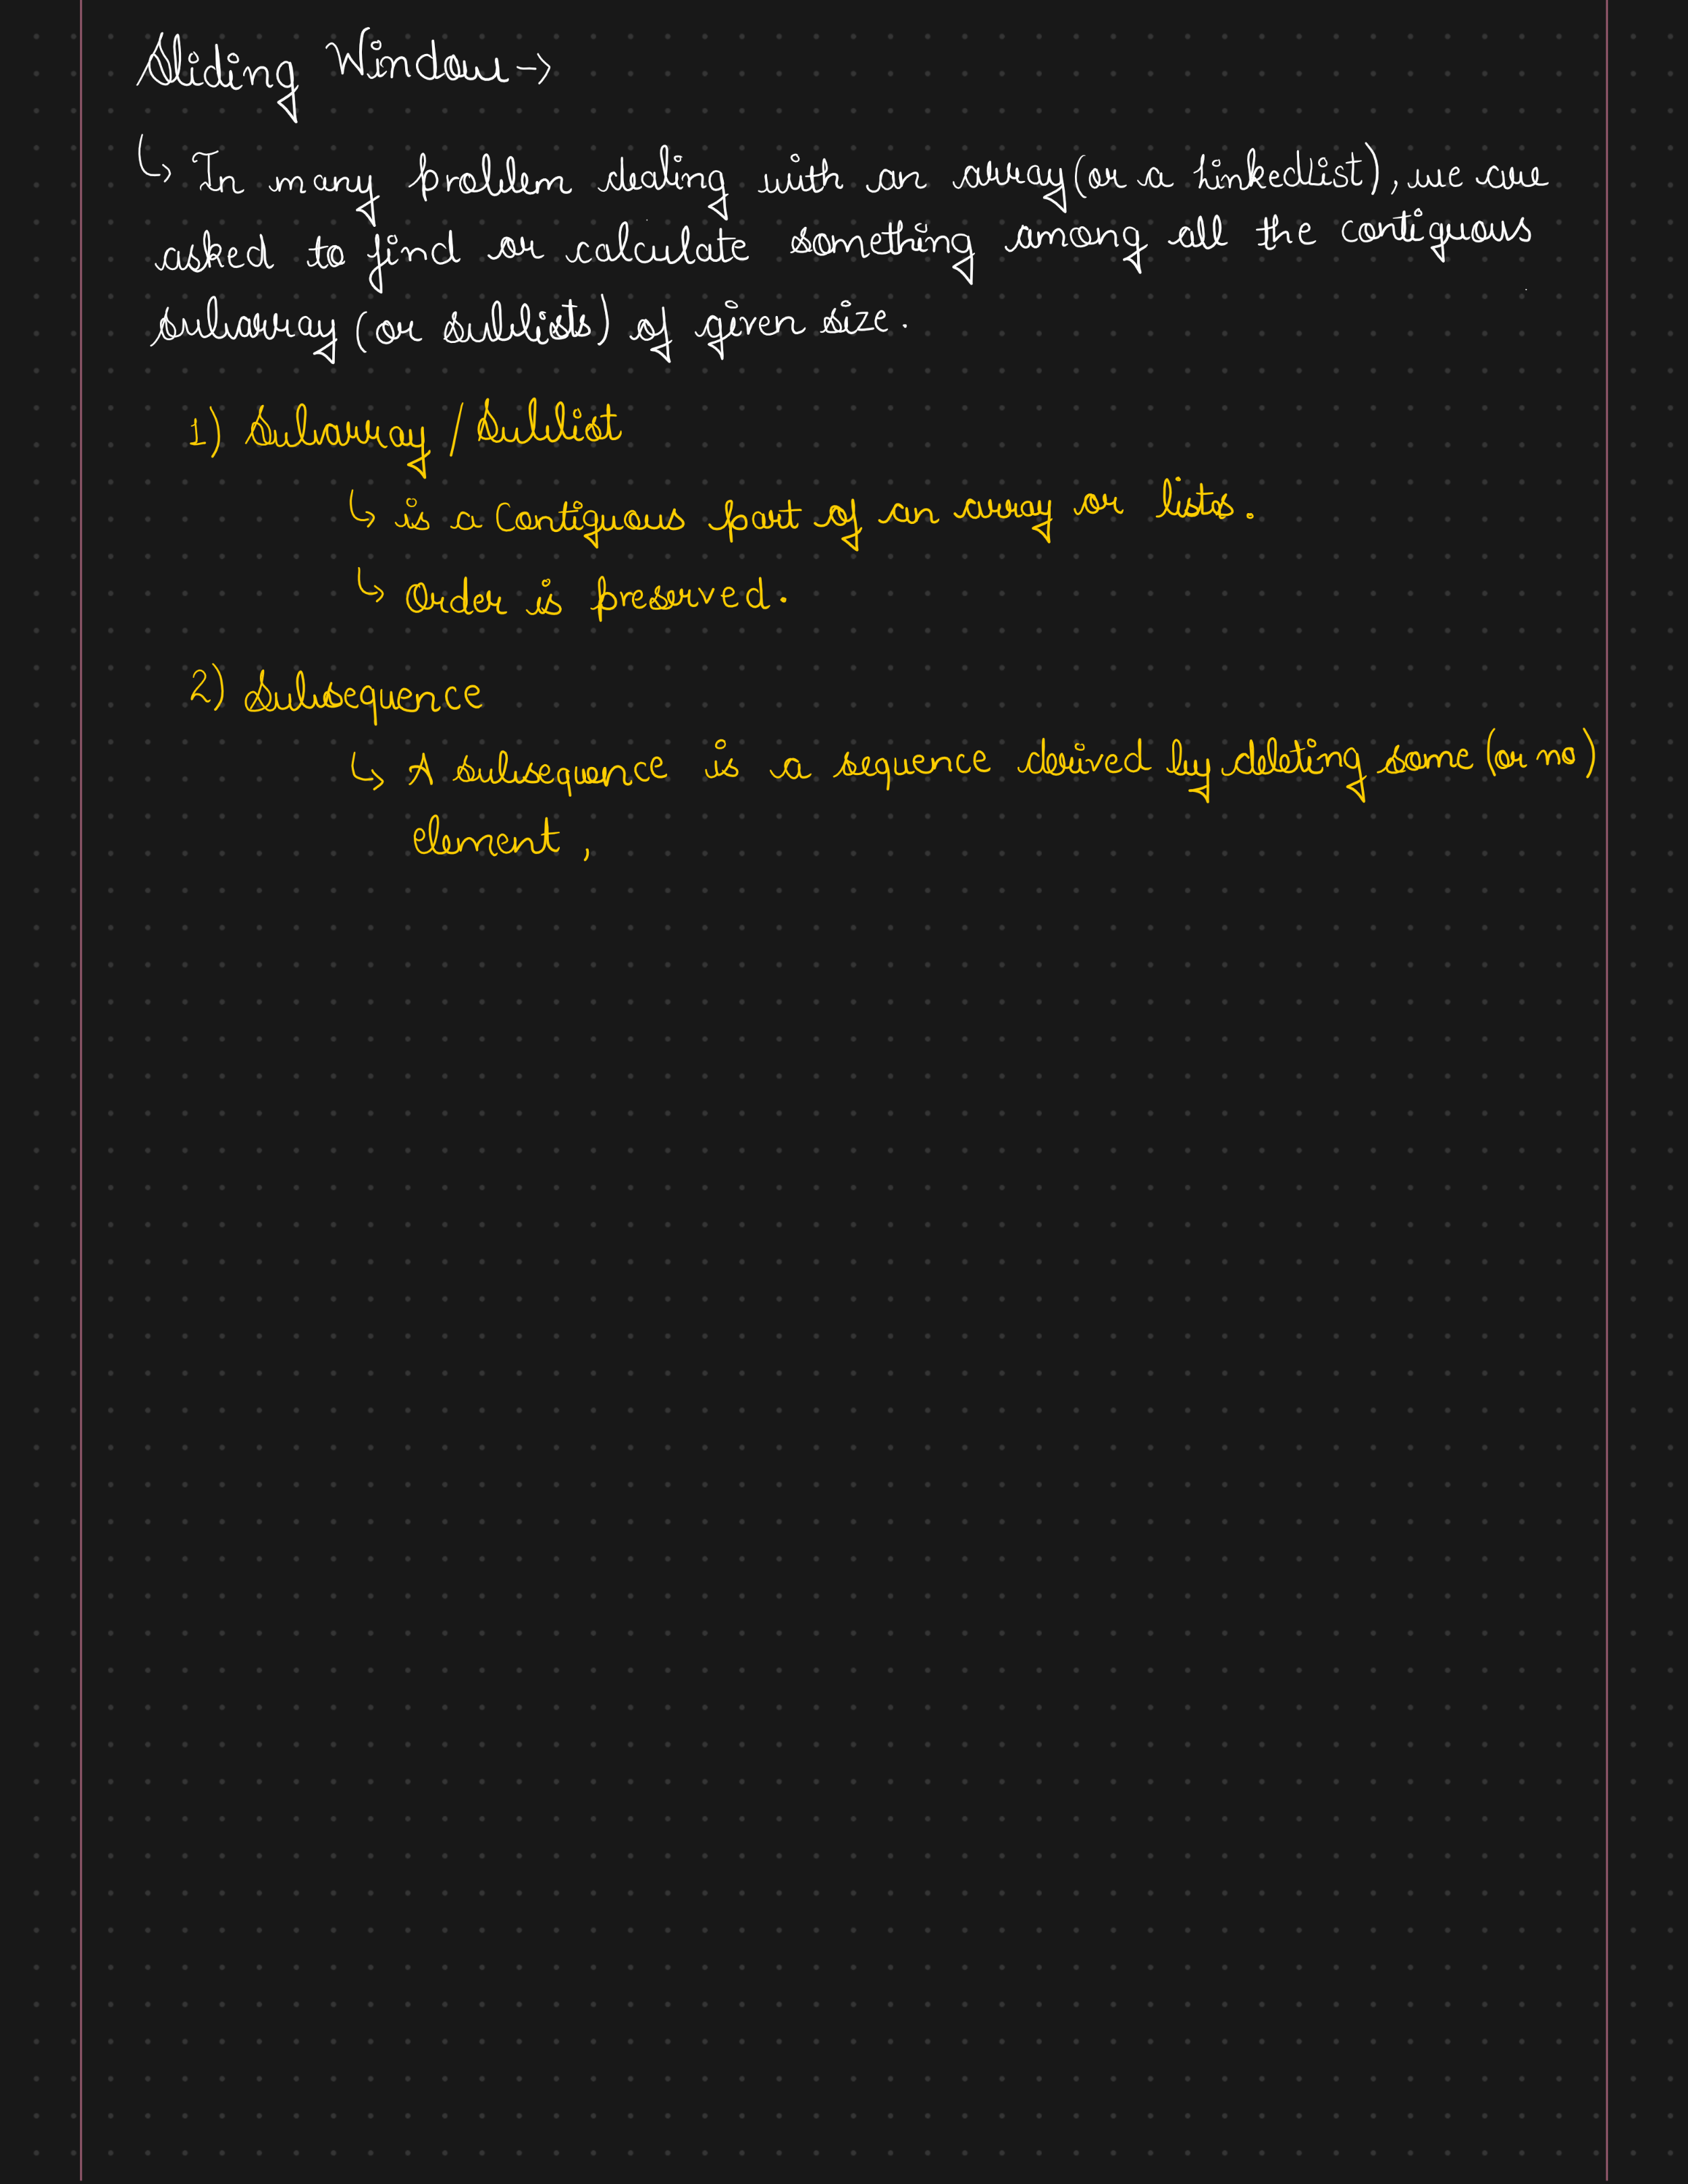 Sliding Window →
↳ In many problem dealing with an array (or a LinkedList), we are
asked to find or calculate something among all the contiguous
subarray (or sublists) of given size.
1) Subarray / Sublist
↳ is a Contiguous part of an array or lists.
↳ Order is preserved.
2) Subsequence
↳ A subsequence is a sequence derived by deleting some (or no)
element,